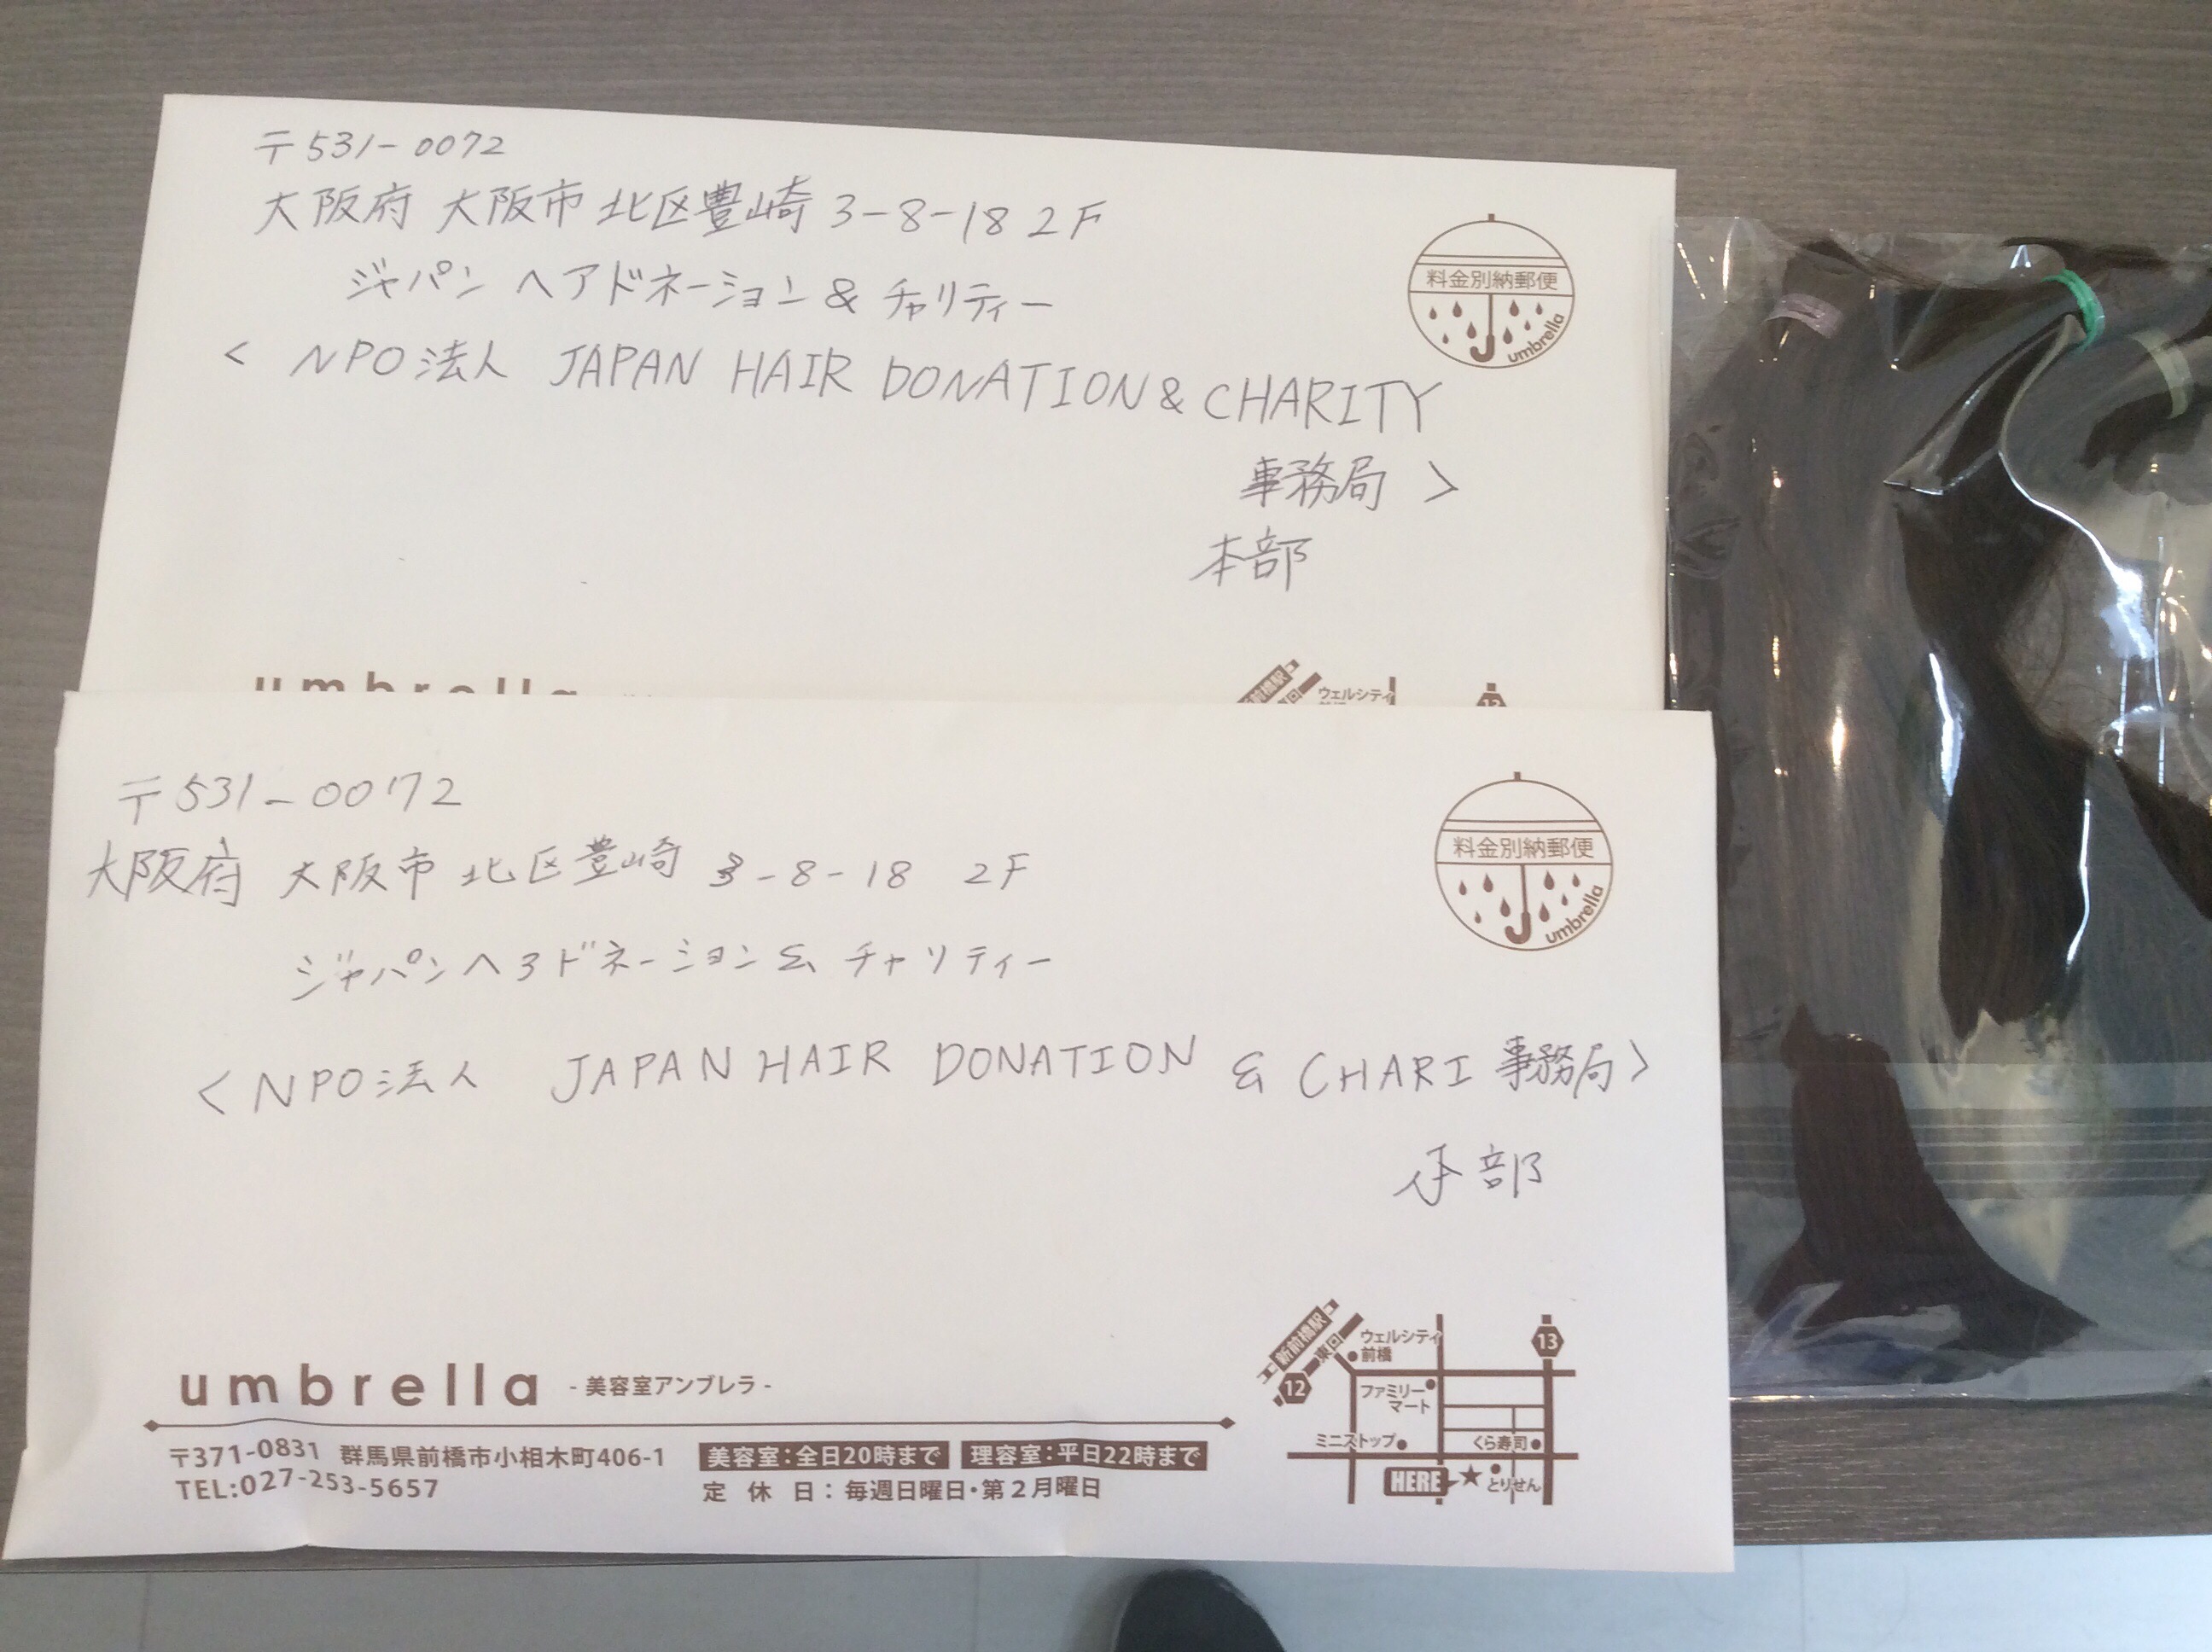 〒531-0072
大阪府 大阪市 北区豊崎 3-8-18 2F
ジャパン ヘアドネーション & チャリティー
< NPO法人 JAPAN HAIR DONATION & CHARITY
事務局 >
本部
料金別納郵便
umbrella
umbrella
ウェルシティ
13
〒531-0072
大阪府 大阪市 北区豊崎 3-8-18 2F
ジャパンヘアドネーション & チャリティー
<NPO法人 JAPAN HAIR DONATION & CHARI 事務局>
本部
料金別納郵便
umbrella
umbrella - 美容室アンブレラ -
〒371-0831 群馬県前橋市小相木町406-1
美容室:全日20時まで 理容室:平日22時まで
TEL:027-253-5657
定 休 日 : 毎週日曜日・第2月曜日
新前橋駅
東口
ウェルシティ
前橋
13
12
ファミリー
マート
ミニストップ
くら寿司
HERE
とりせん